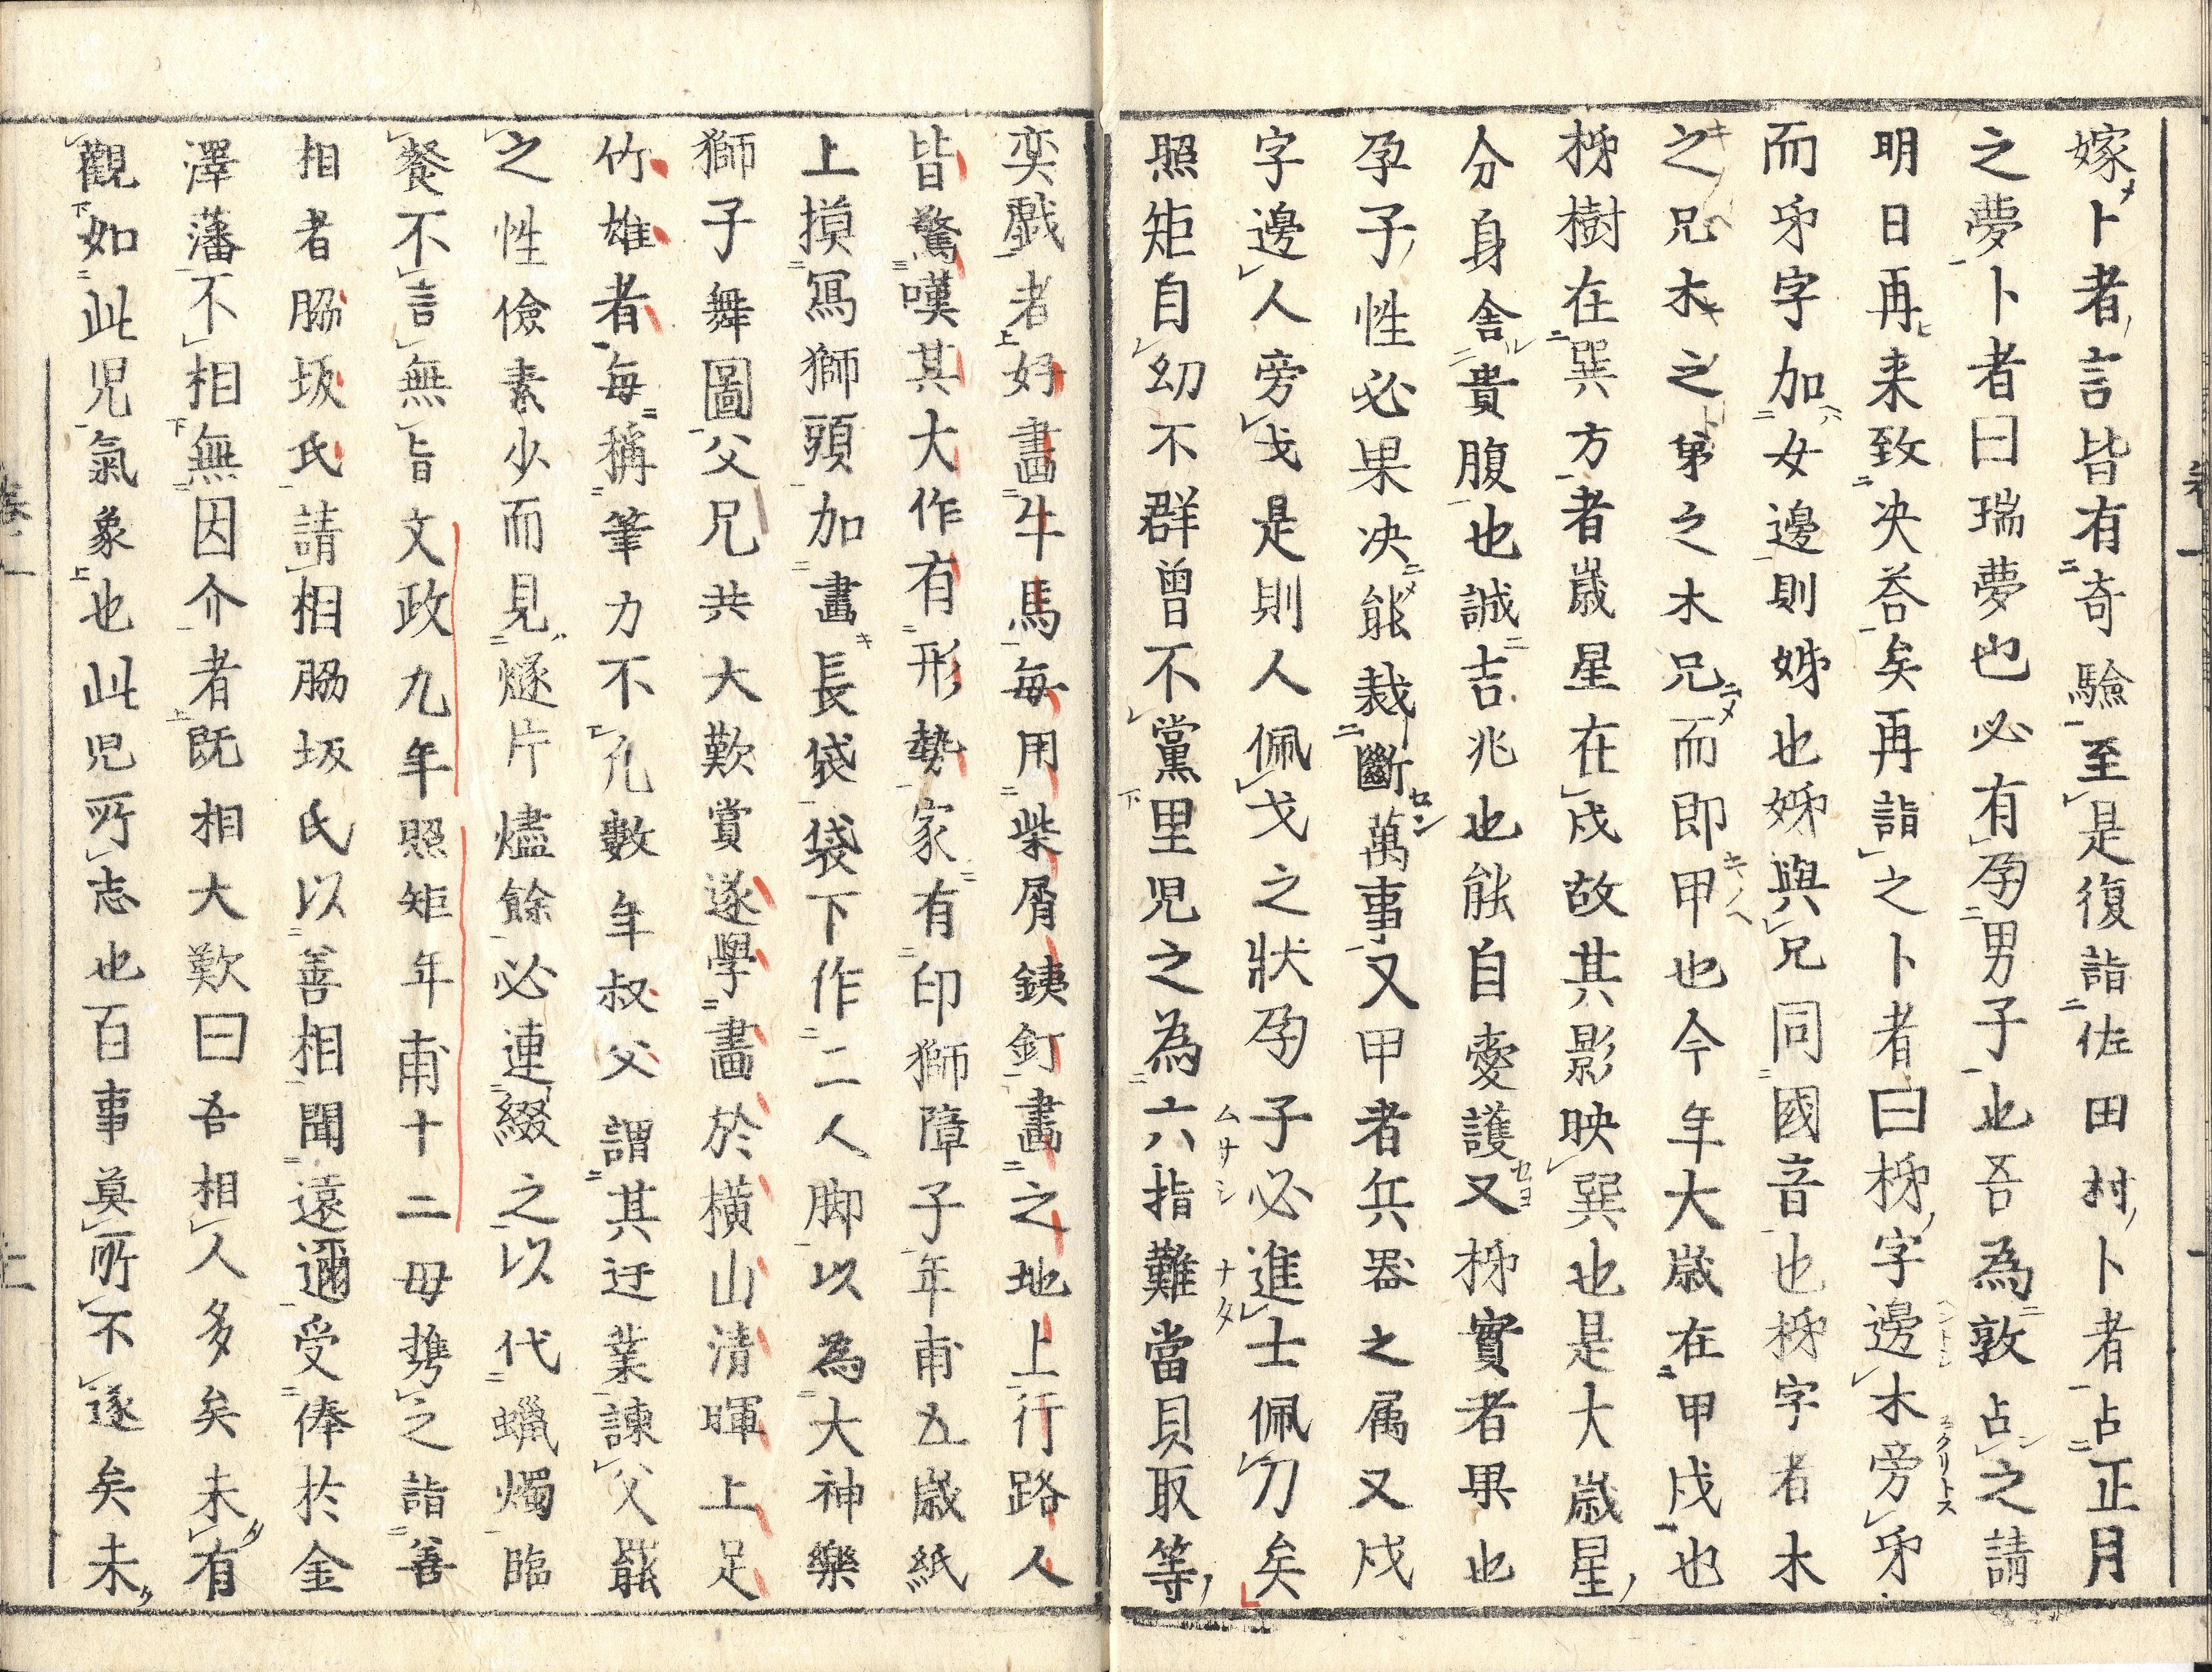 嫁卜者言皆有奇驗至是復詣佐田村卜者占正月
之夢卜者曰瑞夢也必有孕男子也吾為敦占之請
明日再来致决荅矣再詣之卜者曰柹字邊木旁𠂔
而𠂔字加女邊則姊也姊與兄同國音也柹字者木
之兄木之弟之木兄而即甲也今年大歳在甲戌也
柹樹在巽方者歳星在戌故其影映巽也是大歳星
分身舎貴腹也誠吉兆也能自愛護又柹實者果也
孕子性必果决能裁斷萬事又甲者兵器之属又戌
字邊人旁戈是則人佩戈之狀孕子必進士佩刀矣
照矩自幼不群曽不黨里児之為六指難當貝取等
奕戯者好畫牛馬毎用柴屑銕釘畫之地上行路人
皆驚嘆其大作有形勢家有印獅障子年甫五歳紙
上摸冩獅頭加畫長袋袋下作二人脚以為大神樂
獅子舞圖父兄共大歎賞遂學畫於横山清暉上足
竹雄者毎稱筆力不凢數年叔父謂其迂業諌父罷
之性儉素少而見燧片燼餘必連綴之以代蝋燭臨
餐不言無旨文政九年照矩年甫十二母携之詣善
相者脇坂氏請相脇坂氏以善相聞遠邇受俸於金
澤藩不相無因介者既相大歎曰吾相人多矣未有
觀如此児氣象也此児所志也百事莫所不遂矣未